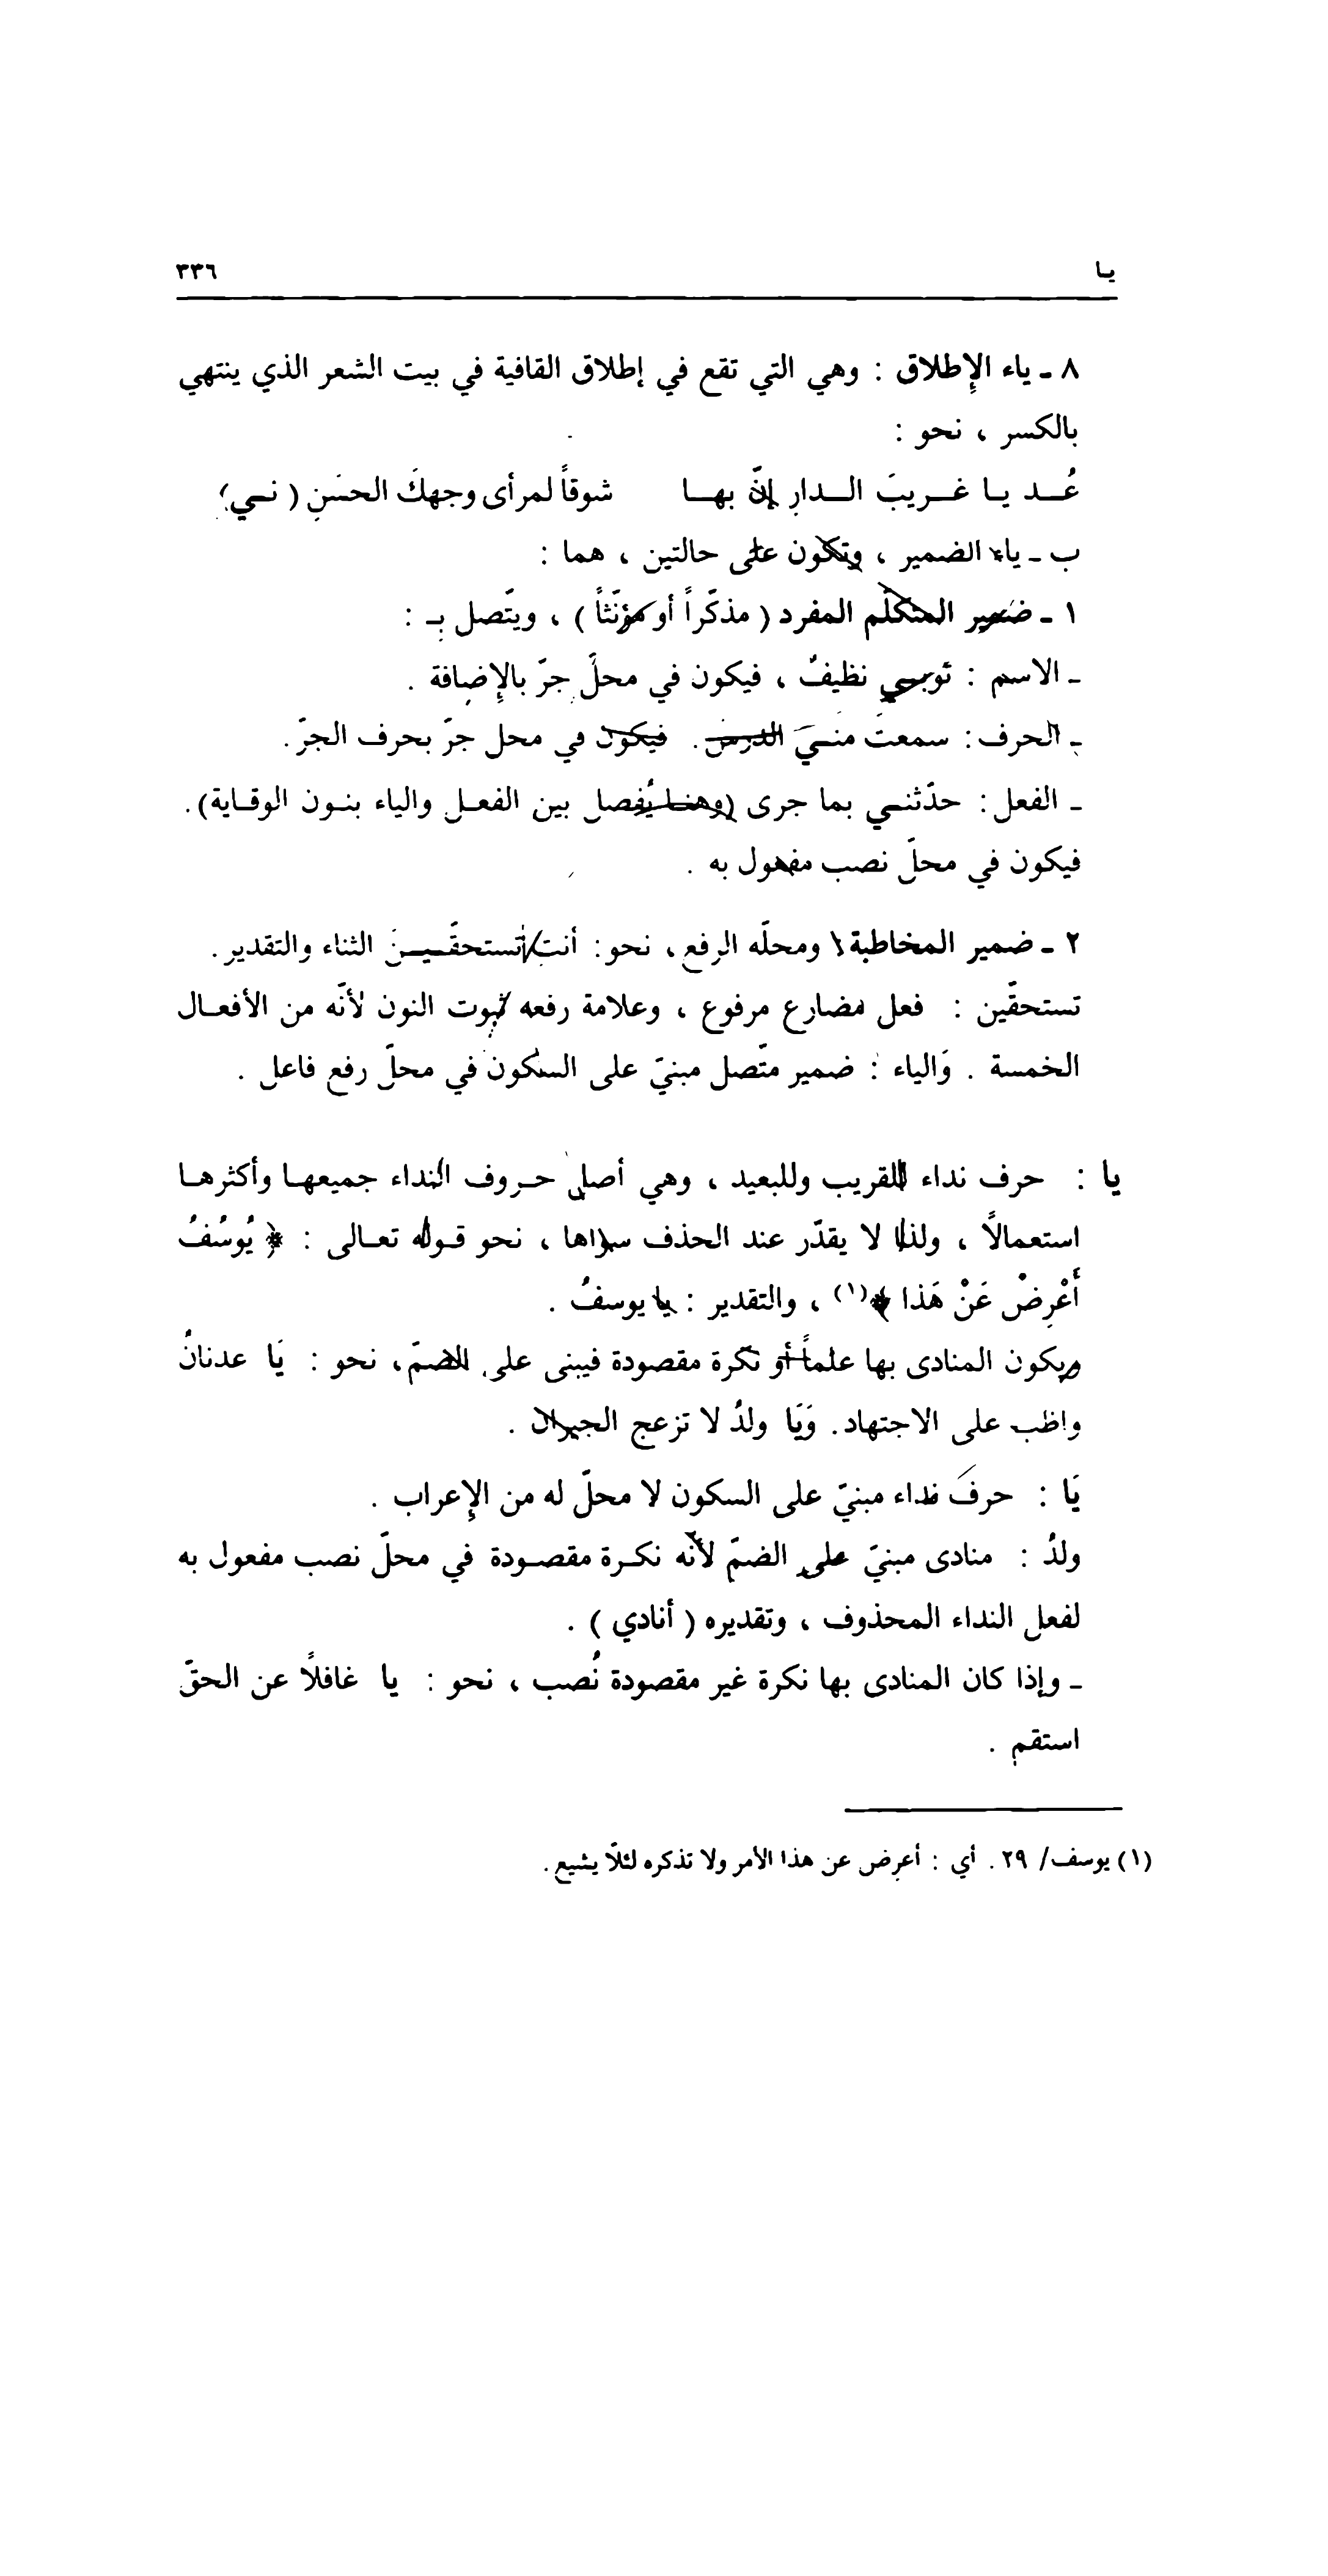 يا ٣٣٦
٨ ـ ياء الإطلاق : وهي التي تقع في إطلاق القافية في بيت الشعر الذي ينتهي
بالكسر ، نحو :
عُـد يـا غـريبَ الـدارِ إنّ بهـا شوقاً لمرأى وجهكَ الحسَنِ ( نـي )
ب ـ ياء الضمير ، وتكون على حالتين ، هما :
١ ـ ضمير المتكلّم المفرد ( مذكّراً أو مؤنّثاً ) ، ويتّصل بـ :
ـ الاسم : ثوبـي نظيفٌ ، فيكون في محلّ جرّ بالإضافة .
ـ الحرف : سمعتَ منـيَ الدرسَ . فيكون في محل جرّ بحرف الجرّ .
ـ الفعل : حدّثنـي بما جرى (وهنـا يُفصل بين الفعـل والياء بنـون الوقـاية) .
فيكون في محلّ نصب مفعول به .
٢ ـ ضمير المخاطبة ، ومحلّه الرفع ، نحو : أنتِ تستحقّـيـنَ الثناء والتقدير .
تستحقّين : فعل مضارع مرفوع ، وعلامة رفعه ثبوت النون لأنّه من الأفعـال
الخمسة . وَالياء : ضمير متّصل مبنيّ على السكون في محلّ رفع فاعل .
يا : حرف نداء للقريب وللبعيد ، وهي أصل حـروف النداء جميعهـا وأكثرهـا
استعمالًا ، ولذا لا يقدّر عند الحذف سواها ، نحو قـوله تعـالى : ﴿ يُوسُفُ
أَعْرِضْ عَنْ هَذا ﴾(١) ، والتقدير : يا يوسفُ .
ويكون المنادى بها علماً أو نكرة مقصودة فيبنى على الضمّ ، نحو : يَا عدنانُ
واظب على الاجتهاد . وَيَا ولدُ لا تزعج الجيران .
يَا : حرفَ نداء مبنيّ على السكون لا محلّ له من الإعراب .
ولدُ : منادى مبنيّ على الضمّ لأنّه نكـرة مقصـودة في محلّ نصب مفعول به
لفعل النداء المحذوف ، وتقديره ( أنادي ) .
ـ وإذا كان المنادى بها نكرة غير مقصودة نُصب ، نحو : يا غافلًا عن الحقّ
استقم .
(١) يوسف/ ٢٩ . أي : أعرِض عن هذا الأمر ولا تذكره لئلّا يشيع .